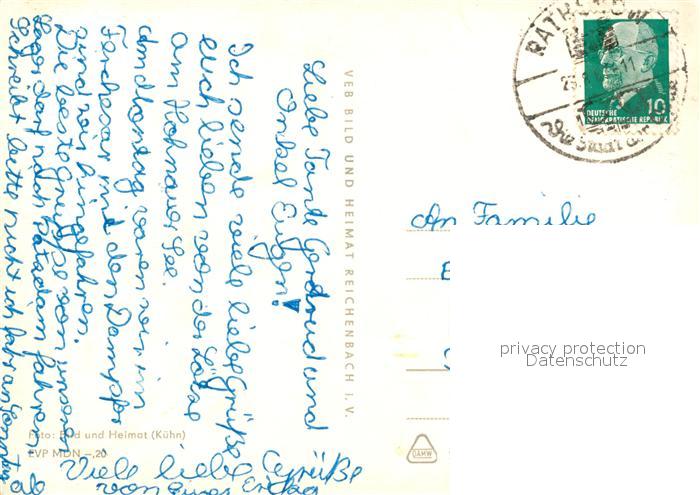 Liebe Tante Gertrud und
Onkel Eugen!
Ich sende viele liebe Grüße
euch lieben von der
am Hohnauer See.
Am Montag waren wir in
Ferchesar mit den Dampfer
sind wir hingefahren.
Die beste Gruppe von unserer
Lager darf nach Potsdam fahren
Schreibt bitte nicht ich fahr am
Viele liebe Grüße
von eurer
VEB BILD UND HEIMAT REICHENBACH I. V.
Foto: Bild und Heimat (Kühn)
EVP MDN -,20
DAMW
RATHENOW
10
DEUTSCHE
DEMOKRATISCHE REPUBLIK
An Familie
privacy protection
Datenschutz